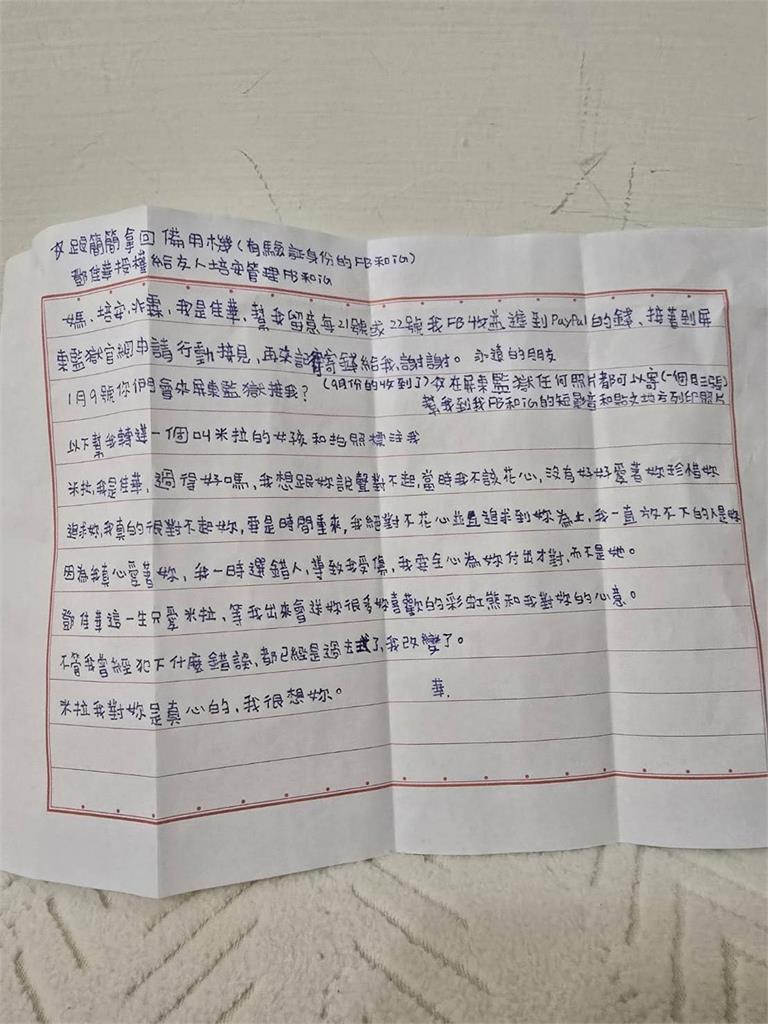 跟簡簡拿回備用機(有驗証身份的FB和iG)
鄧佳華授權給友人培安管理FB和iG
媽、培安、兆霖,我是佳華,幫我留意每21號或22號我FB收益進到PayPal的錢、接著到屏
東監獄官網申請行動接見,再來記得寄錢給我,謝謝。永遠的朋友
1月9號你們會來屏東監獄接我?(9月份的收到了)在屏東監獄任何照片都可以寄(一個月三張)
幫我到我FB和iG的短影音和貼文地方列印照片
以下幫我轉達一個叫米拉的女孩和拍照標注我
米拉,我是佳華,過得好嗎,我想跟妳說聲對不起,當時我不該花心,沒有好好愛著妳珍惜妳
追求妳,我真的很對不起妳,要是時間重來,我絕對不花心並且追求到妳為止,我一直放不下的人是妳
因為我真心愛著妳,我一時選錯人,導致我受傷,我要全心為妳付出才對,而不是她。
鄧佳華這一生只愛米拉,等我出來會送妳很多妳喜歡的彩虹熊和我對妳的心意。
不管我曾經犯下什麼錯誤,都已經是過去式了,我改變了。
米拉我對妳是真心的,我很想妳。 華.